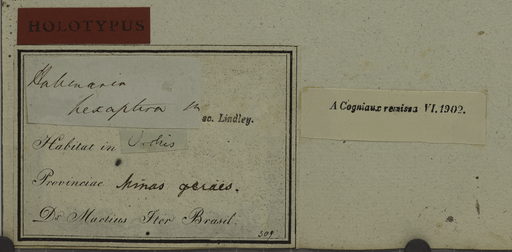 HOLOTYPUS
Habenaria
hexaptera
sc. Lindley.
Habitat in Orchis
Provinciae Minas geraes.
Dr Martius Iter Brasil.
A Cogniaux remissa VI. 1902.